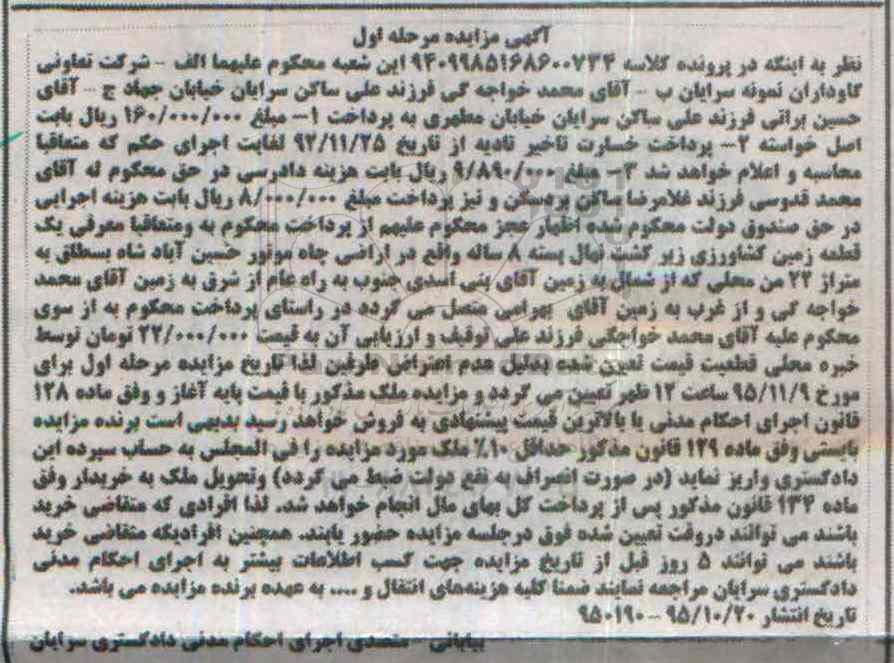 آگهی مزایده مرحله اول
نظر به اینکه در پرونده کلاسه ۹۴۰۹۹۸۵۱۶۸۶۰۰۷۳۴ این شعبه محکوم علیهما الف - شرکت تعاونی
گاوداران نمونه سرایان ب - آقای محمد خواجه گی فرزند علی ساکن سرایان خیابان جهاد ج - آقای
حسین براتی فرزند علی ساکن سرایان خیابان مطهری به پرداخت ۱- مبلغ ۱۶۰/۰۰۰/۰۰۰ ریال بابت
اصل خواسته ۲- پرداخت خسارت تاخیر تادیه از تاریخ ۹۲/۱۱/۲۵ لغایت اجرای حکم که متعاقبا
محاسبه و اعلام خواهد شد ۳- مبلغ ۹/۸۹۰/۰۰۰ ریال بابت هزینه دادرسی در حق محکوم له آقای
محمد قدوسی فرزند غلامرضا ساکن بردسکن و نیز پرداخت مبلغ ۸/۰۰۰/۰۰۰ ریال بابت هزینه اجرایی
در حق صندوق دولت محکوم شده اظهار عجز محکوم علیهم از پرداخت محکوم به ومتعاقبا معرفی یک
قطعه زمین کشاورزی زیر کشت نهال پسته ۸ ساله واقع در اراضی چاه موتور حسین آباد شاه بسطلق به
متراژ ۲۲ من محلی که از شمال به زمین آقای بنی اسدی جنوب به راه عام از شرق به زمین آقای محمد
خواجه گی و از غرب به زمین آقای بهرامی متصل می گردد در راستای پرداخت محکوم به از سوی
محکوم علیه آقای محمد خواجگی فرزند علی توقیف و ارزیابی آن به قیمت ۲۲/۰۰۰/۰۰۰ تومان توسط
خبره محلی قطعیت قیمت تعیین شده بدلیل عدم اعتراض طرفین لذا تاریخ مزایده مرحله اول برای
مورخ ۹۵/۱۱/۹ ساعت ۱۲ ظهر تعیین می گردد و مزایده ملک مذکور با قیمت پایه آغاز و وفق ماده ۱۲۸
قانون اجرای احکام مدنی با بالاترین قیمت پیشنهادی به فروش خواهد رسید بدیهی است برنده مزایده
بایستی وفق ماده ۱۲۹ قانون مذکور حداقل ۱۰٪ ملک مورد مزایده را فی المجلس به حساب سپرده این
دادگستری واریز نماید (در صورت انصراف به نفع دولت ضبط می گردد) وتحویل ملک به خریدار وفق
ماده ۱۳۴ قانون مذکور پس از پرداخت کل بهای مال انجام خواهد شد. لذا افرادی که متقاضی خرید
باشند می توانند دروقت تعیین شده فوق درجلسه مزایده حضور یابند. همچنین افرادیکه متقاضی خرید
باشند می توانند ۵ روز قبل از تاریخ مزایده جهت کسب اطلاعات بیشتر به اجرای احکام مدنی
دادگستری سرایان مراجعه نمایند ضمنا کلیه هزینه‌های انتقال و .... به عهده برنده مزایده می باشد.
تاریخ انتشار ۹۵/۱۰/۲۰ - ۹۵۰۱۹۰
بیابانی - متصدی اجرای احکام مدنی دادگستری سرایان